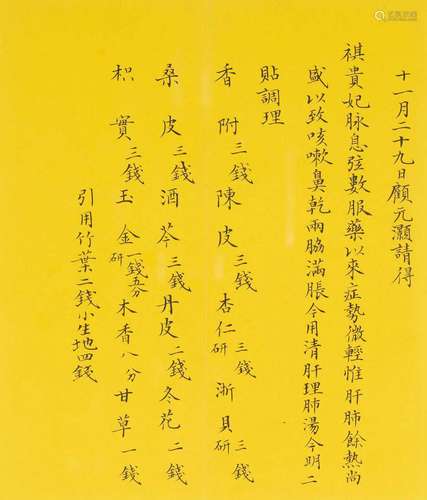 十一月二十九日顧元灝請得
祺貴妃脉息弦數服藥以來症勢微輕惟肝肺餘熱尚
盛以致咳嗽鼻乾兩脇滿脹今用清肝理肺湯今明二
貼調理
香附三錢陳皮三錢杏仁三錢研浙貝三錢研
桑皮三錢酒芩三錢丹皮二錢冬花二錢
枳實三錢玉金一錢五分研木香八分甘草一錢
引用竹葉二錢小生地四錢